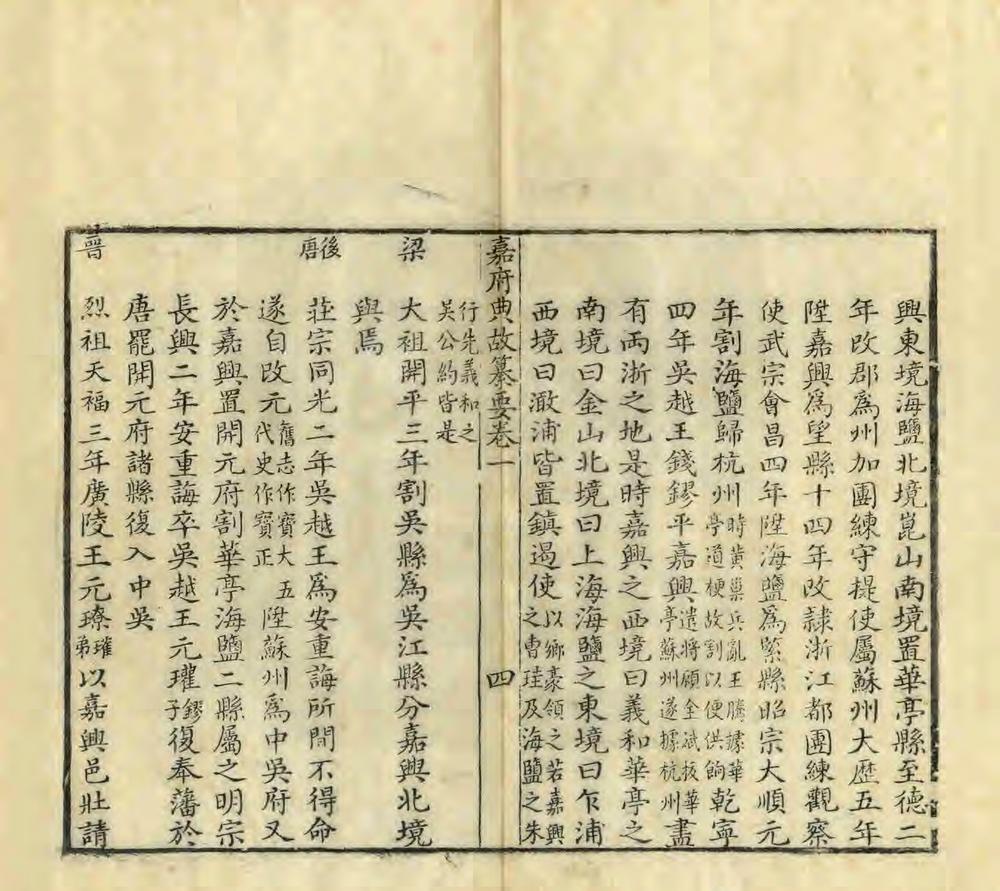 興東境海鹽北境崑山南境置華亭縣至德二
年改郡爲州加團練守提使屬蘇州大歷五年
陞嘉興爲望縣十四年改隸浙江都團練觀察
使武宗會昌四年陞海鹽爲緊縣昭宗大順元
年割海鹽歸杭州時黃巢兵亂王騰據華亭道梗故割以便供餉乾寧
四年吳越王錢鏐平嘉興遣將顧全武拔華亭蘇州遂據杭州盡
有兩浙之地是時嘉興之西境曰義和華亭之
南境曰金山北境曰上海海鹽之東境曰乍浦
西境曰澉浦皆置鎮遏使以鄉豪領之若嘉興之曹珪及海鹽之朱
嘉府典故纂要卷一 四
行先義和之吳公約皆是
梁 大祖開平三年割吳縣爲吳江縣分嘉興北境
與焉
後唐 莊宗同光二年吳越王爲安重誨所間不得命
遂自改元舊志作寶大五代史作寶正陞蘇州爲中吳府又
於嘉興置開元府割華亭海鹽二縣屬之明宗
長興二年安重誨卒吳越王元瓘鏐子復奉藩於
唐罷開元府諸縣復入中吳
晉 烈祖天福三年廣陵王元璙瓘弟以嘉興邑壯請